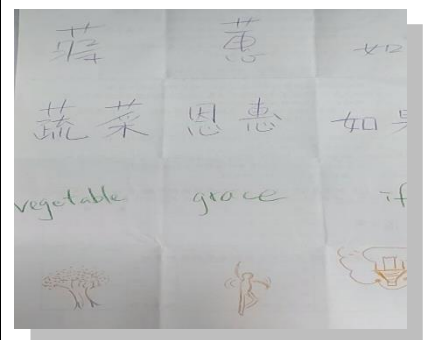 蕙 如
蔬 菜 恩 惠 如
vegetable grace if